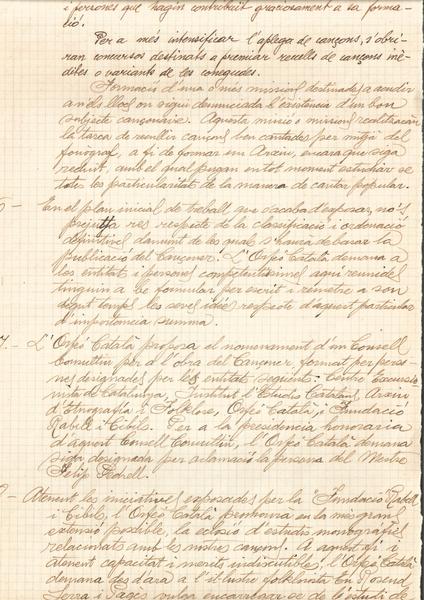 i persones que hagin contribuit graciosament a sa forma-
ció.
Per a més intensificar l'aplega de cançons, s'obri-
ran concursos destinats a premiar reculls de cançons inè-
dites o variants de les conegudes.
Formació d'una o més missions destinades a acudir
an als llocs on sigui denunciada l'existencia d'un bon
subjecte cançonaire. Aquesta missió o missions realitzaran
la tasca de recullir cançons ben cantades per mitjà del
fonógraf, a fi de formar un Arxiu, encara que siga
reduit, amb el qual pugan en tot moment estudiar-se
totes les particularitats de la manera de cantar popular.
6 - En el plan inicial de treball que s'acaba d'exposar, no's
prejutja res respecte de la classificació i ordenació
definitives damunt de les quals s'haurà de basar la
publicació del Cançoner. L'Orfeó Català demana a
les entitats i persones competentissimes aquí reunides
tinguin a be formular per escrit i remetre a son
degut temps les seves idees respecte d'aquest particular
d'importancia summa.
7. - L'Orfeó Català proposa el nomenament d'un Consell
Consultiu per a l'obra del Cançoner, format per perso-
nes designades per les entitats següents: Centre Excursio-
nista de Catalunya, Institut d'Estudis Catalans, Arxiu
d'Etnografia i Folklore, Orfeó Català, i Fundació
Rabell i Cibils. Per a la presidencia honoraria
d'aquest Consell Consultiu, l'Orfeó Català demana
siga designada per aclamació la persona del Mestre
Felip Pedrell.
Atenent les iniciatives exposades per la Fundació Rabell
i Cibils, l'Orfeó Català en la més gran
extensió possible, la eclosió d'estudis monografics
relacionats amb les nostres cançons. A aquest fi i
atenent capacitat i merits indiscutibles, l'Orfeó Català
demana des d'ara a l'il·lustre folklorista En Rosend
Serra i Pagès vulga encarregar-se de l'estudi de